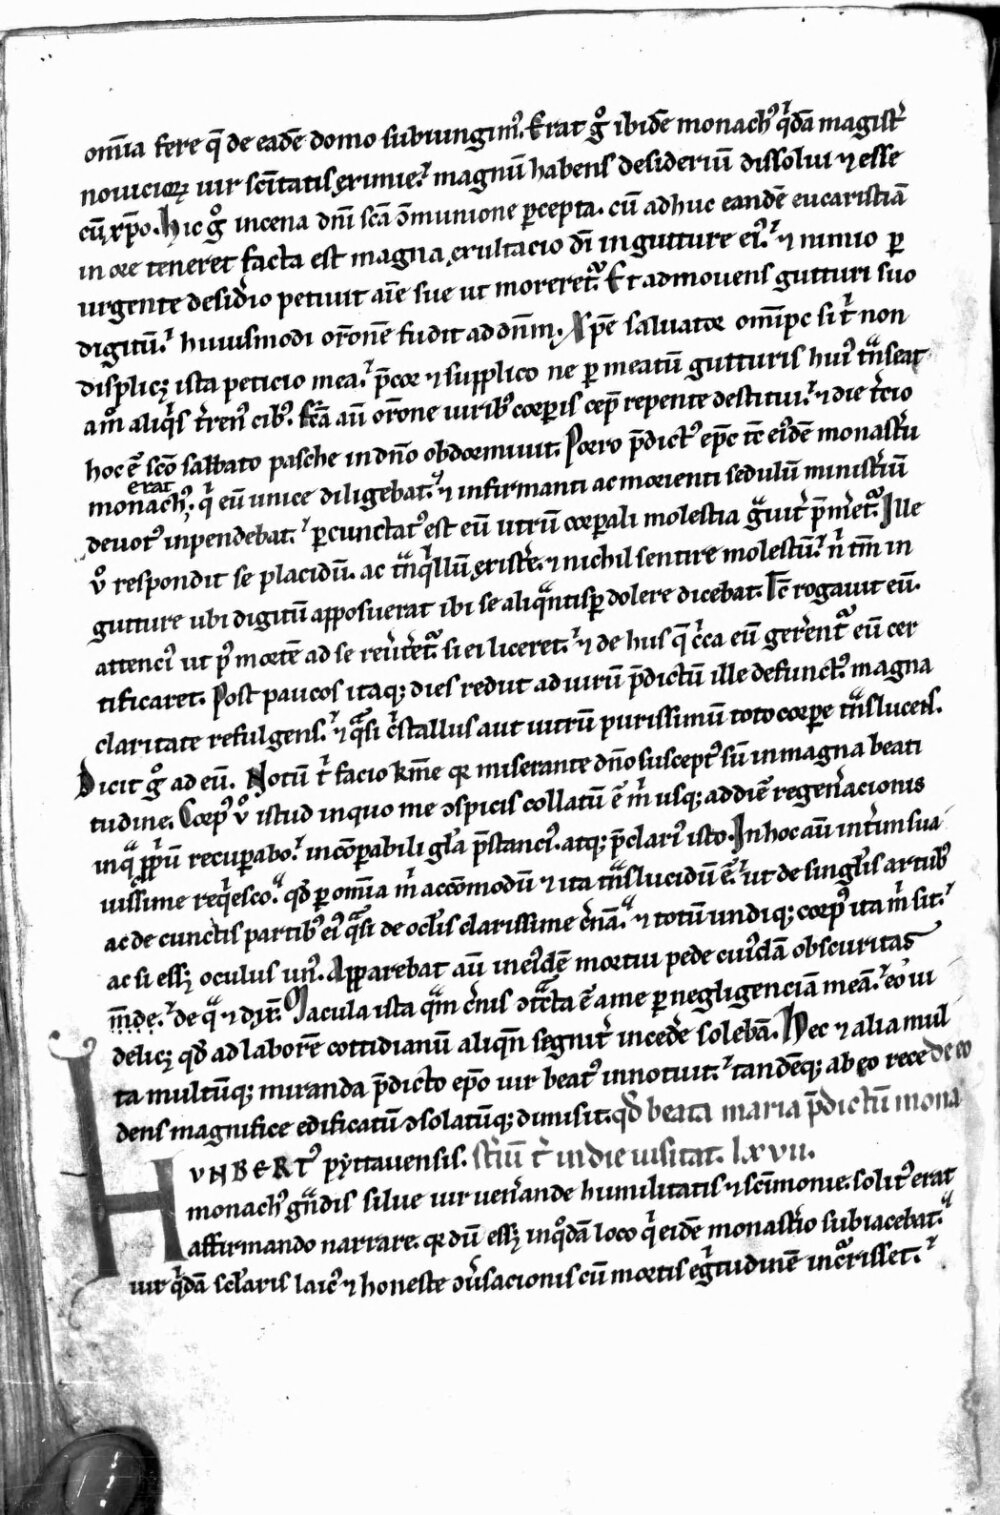 om̄ia fere q̄ de eadē domo subiungim᷒. Erat gͦ ibidē monach᷒ qͥdā magistͥ
nouicioꝝ uir scītatis eximie. magnū habens desideriū dissolui ⁊ esse
cū xp̄o. Hic gͦ in cena dn̄i scā ↄ̄munione ꝑcepta. cū adhuc eandē eucaristiā
in ore teneret facta est magna exultacio dī in gutture ei᷒. ⁊ nimio ꝑ
urgente desidͥio petiuit aīe sue ut moreret᷑. Et admouens gutturi suo
digitū. huiusmodi orōnē fudit ad dn̄m. Xp̄e saluator om̄ipc si tͥ non
displicꝫ ista peticio mea. p̄cor ⁊ supplico ne ꝑ meatū gutturis hui᷒ tͣnseat
am̊ aliqͥs tͥren᷒ cib᷒. Fc̄a aū orōne uirib᷒ corꝑis cep̄ repente destitui. ⁊ die tͥcio
hoc ē scō sabbato pasche in dn̄o obdormiuit. Porro p̄dict᷒ ep̄c tc̄ ei᷒dē monastͥii
erat
monach᷒. qͥ eū unice diligebat. ⁊ infirmanti ac morienti sedulū ministͥiū
deuot᷒ inpendebat. ꝑcunctat᷒ est eū utrū corꝑali molestia gͣuit᷑ p̄met᷑. Ille
v̊ respondit se placidū. ac tͣnqͥllū existͥe. ⁊ nichil sentire molestū. nͥ tm̄ in
gutture ubi digitū apposuerat ibi se aliqͣntisꝑ dolere dicebat. Tc̄ rogauit eū.
attenci᷒ ut p᷒ mortē ad se reuͥtet᷑ si ei liceret. ⁊ de hus q̄ cͥca eū gerͥent᷑ eū cer
tificaret. Post paucos itaqꝫ dies rediit ad uirū p̄dictū ille defunct᷒. magna
claritate refulgens. ⁊ qͣsi cͥstallus aut uitrū purissimū toto corꝑe tͣnslucens.
Dicit gͦ ad eū. Notū tͥ facio km̄e qꝛ miserante dn̄o suscept᷒ sū in magna beati
tudine. Corp᷒ v̊ istud in quo me ↄspicis collatū ē mͥ usqꝫ ad diē regenͥacionis
in qͣ ꝓpͥū recuꝑabo. incōꝑabili gl̄a p̄stanci᷒. atqꝫ p̄clari᷒ isto. In hoc aū intͥim sua
uissime reqͥesco. qd̄ ꝑ om̄ia mͥ accōmodū ⁊ ita tͣnslucidū ē. ut de singl̄is artub᷒
ac de cunctis partib᷒ ei᷒ qͣsi de ocl̄is clarissime cͥnā. ⁊ totū undiqꝫ corp᷒ ita mͥ sit.
ac si essꝫ oculus un᷒. Apparebat aū in ei᷒dē mortui pede cui᷒dā obscuritas
m̄de. de qͣ ⁊ dixͥt. Macula ista qͣm cͥnis ↄtͣcta ē a me ꝑ negligenciā meā. eo ui
delicꝫ qd̄ ad laborē cottidianū aliqn̄ segnit᷑ incedͥe solebā. Hec ⁊ alia mul
ta multūqꝫ miranda p̄dicto ep̄o uir beat᷒ innotuit. tandēqꝫ ab eo rece de eo
dens magnifice edificatū ↄsolatūqꝫ dimisit. qd̄ beata maria p̄dictū mona
HVNBERT᷒ pẏttauensis. stͥiū tͥ in die uisitat. lxvii.
monach᷒ gͣndis silue uir uenͥande humilitatis ⁊ scīmonie. solit᷒ erat
affirmando narrare. qꝛ dū essꝫ in qͦdā loco qͥ eidē monastͥio subiacebat.
uir qͥdā scl̄aris laic᷒ ⁊ honeste ↄuͥsacionis cū mortis egͥtudinē incͦrrisset.